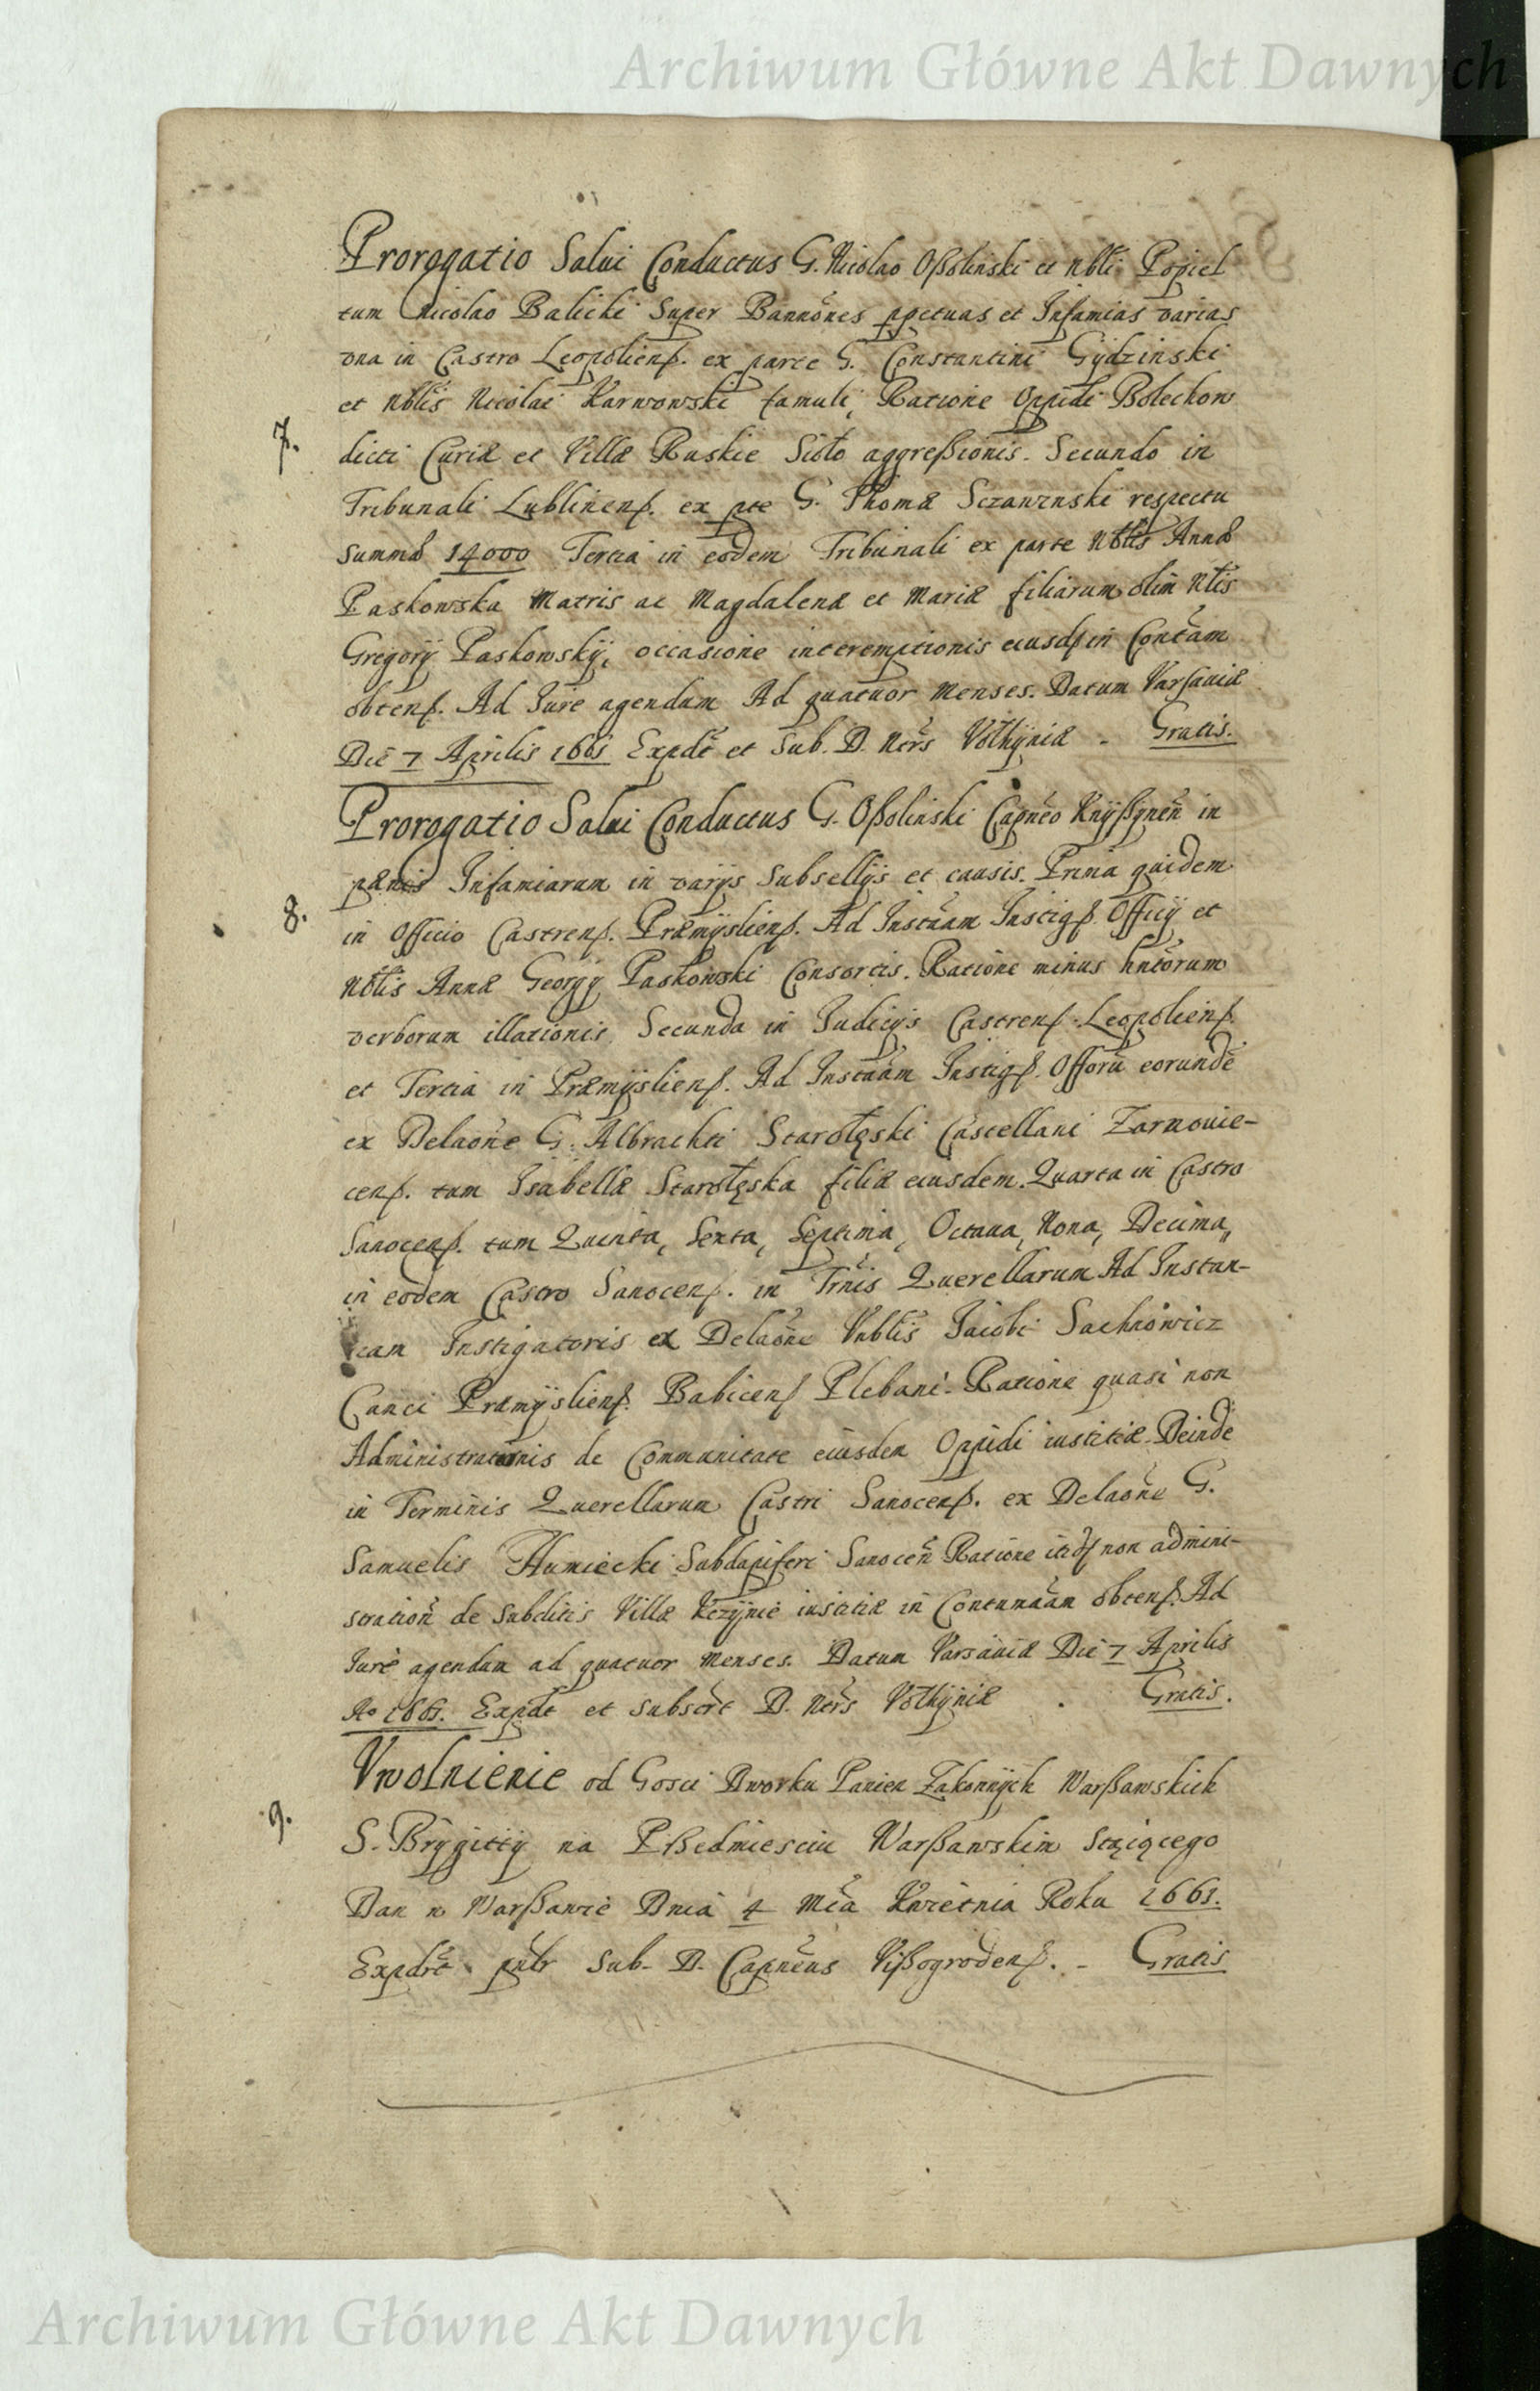 Archiwum Główne Akt Dawnych
Prorogatio Salui Conductus G. Nicolao Oßolinski et Nbli Popiel
tum Nicolao Balicki Super Bannões ppetuas et Infamias varias
vna in Castro Leopolienß. ex parte G. Constantini Gydzinski
et Nblis Nicolai Karwowski famuli, Ratione Oppidi Bolechow
7.
dicti Curiæ et Villæ Ruskie Sioło aggreßionis. Secundo in
Tribunali Lublinenß. ex pte G. Thomæ Sczawinski respectu
summæ 14000 Tertia in eodem Tribunali ex parte Nblis Annæ
Paskowska Matris ac Magdalenæ et Mariæ filiarum olim Nlis
Gregory Paskowskÿ, occasione interemptionis eiusdß in Contãm
obtenß. Ad Iure agendum Ad quatuor Menses. Datum Varsauiæ
Die 7 Aprilis 1661 Expdt et Sub. D. Ners Vołhÿniæ - Gratis.
Prorogatio Salui Conductus G. Oßolinski Capneo Knÿßÿneñ in
pænis Infamiarum in varÿs Subsellÿs et causis. Prima quidem
8.
in Officio Castrenß. Præmÿslienß. Ad Instãm Instigß. Officÿ et
Nblis Annæ Georgÿ Paskowski Consortis. Ratione minus hnẽorum
verborum illationis Secunda in Judicÿs Castrenß Leopolienß.
et Tertia in Præmÿslienß. Ad Instãm Instigß. Offorũ eorundẽ
ex Delaone G. Albrachti Starołęski Castellani Zarnouie-
cenß. tum Isabellæ Starołęska filiæ eiusdem. Quarta in Castro
Sanocenß. tum Quinta, Sexta, Septima, Octaua, Nona, Decima,,
in eodem Castro Sanocenß. in Trnis Querellarum Ad Instan-
tiam Instigatoris ex Delaone Vnblis Jacobi Sachnowicz
Canci Præmÿslienß. Babicenß Plebani. Ratione quasi non
Administrationis de Communitate eiusdem Oppidi iustitiæ. Deindẽ
in Terminis Querellarum Castri Sanocenß. ex Delaone G.
Samuelis Humiecki Subdapiferi Sanoceñ Ratione itidß non admini-
stratioñ de subditis Villæ iustitiæ in Contumãm obtenß. Ad
Iure agendum ad quatuor menses. Datum Varsauiæ Die 7 Aprilis
Ao 1661. Expdt et subscrt D. Ners Vołhÿniæ . Gratis.
Vwolnienie od Gosci Dworku Panien Zakonnÿch Warßawskich
9.
S. Brÿgittÿ na Pßedmiesciu Warßawskim Stoiącego
Dan w Warßawie Dnia 4 Mca Kwietnia Roku 1661.
Expdrt. pntr Sub. D. Capneus Vißogrodenß. - Gratis
Archiwum Główne Akt Dawnych